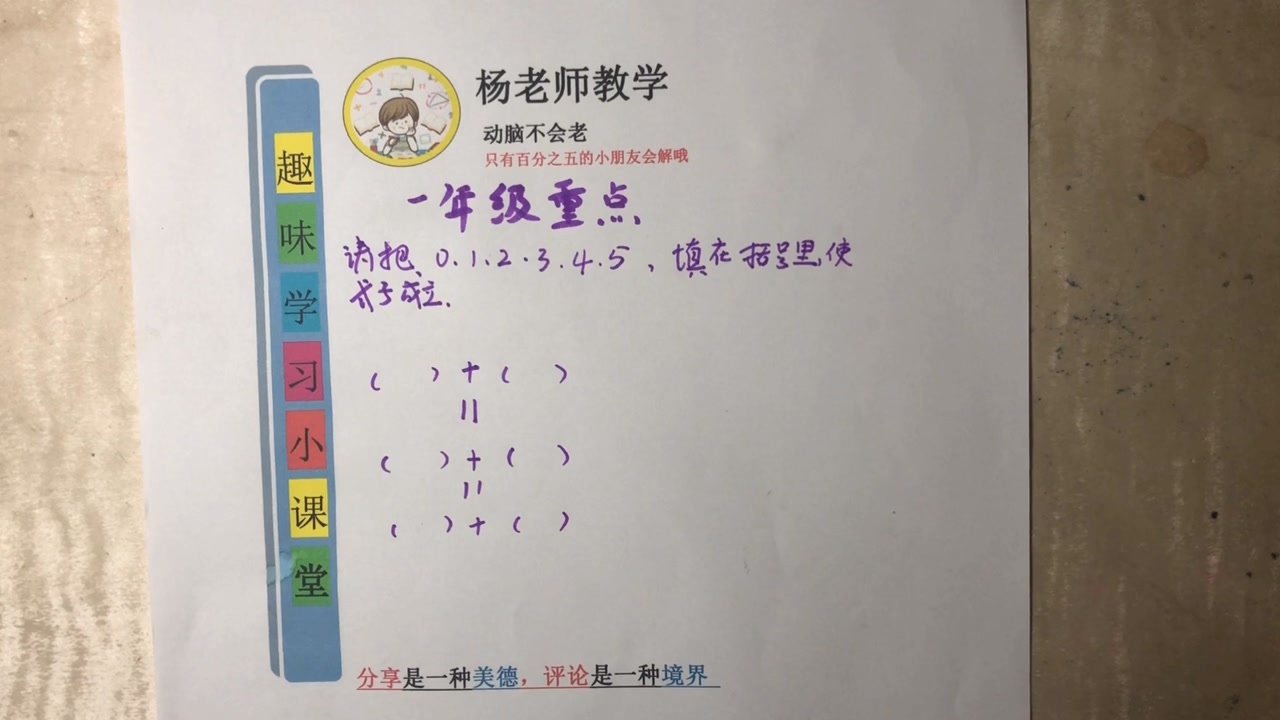 杨老师教学
动脑不会老
只有百分之五的小朋友会解哦
趣味学习小课堂
一年级重点
请把、0.1.2.3.4.5，填在括号里使
式子成立.
(  )+(  )
||
(  )+(  )
||
(  )+(  )
分享是一种美德，评论是一种境界